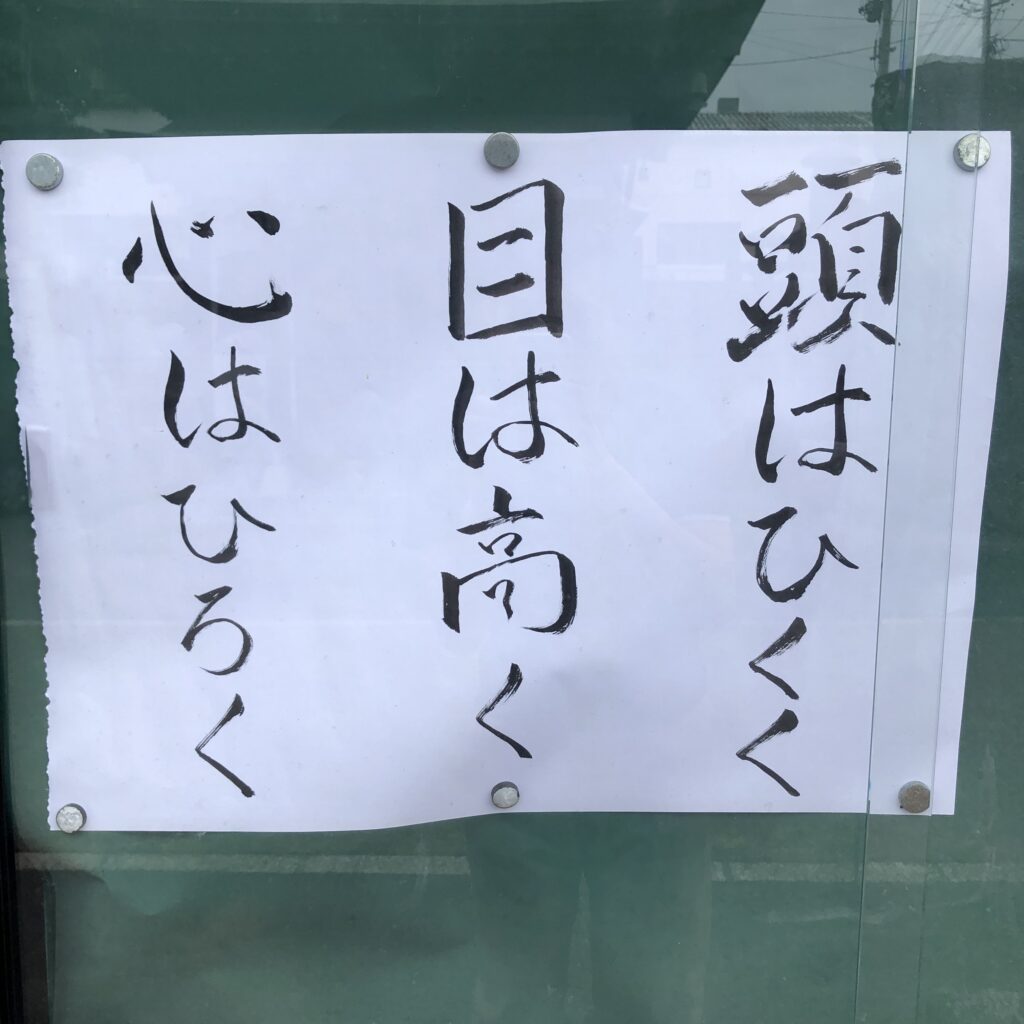 頭はひくく
目は高く
心はひろく